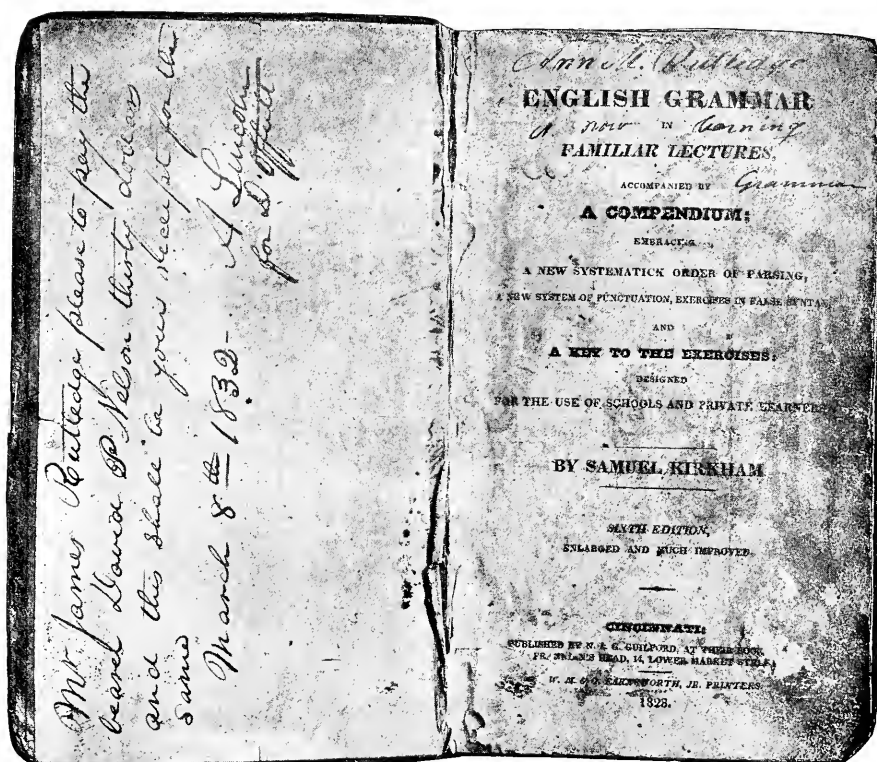 Mr James Rutledge please to pay the
bearer David P Nelson thirty dollars
and this shall be your receipt for the
same
March 8th 1832-
A Lincoln
for D Offutt
Ann M. Rutledge
ENGLISH GRAMMAR
is now IN learning
FAMILIAR LECTURES,
ACCOMPANIED BY Grammar
A COMPENDIUM;
EMBRACING
A NEW SYSTEMATICK ORDER OF PARSING,
A NEW SYSTEM OF PUNCTUATION, EXERCISES IN FALSE SYNTAX,
AND
A KEY TO THE EXERCISES:
DESIGNED
FOR THE USE OF SCHOOLS AND PRIVATE LEARNERS.
BY SAMUEL KIRKHAM
SIXTH EDITION,
ENLARGED AND MUCH IMPROVED.
CINCINNATI:
PUBLISHED BY N. & G. GUILFORD, AT THEIR BOOK
FRANKLIN'S HEAD, 14, LOWER MARKET
W. M. & O. FARNSWORTH, JR. PRINTERS
1828.